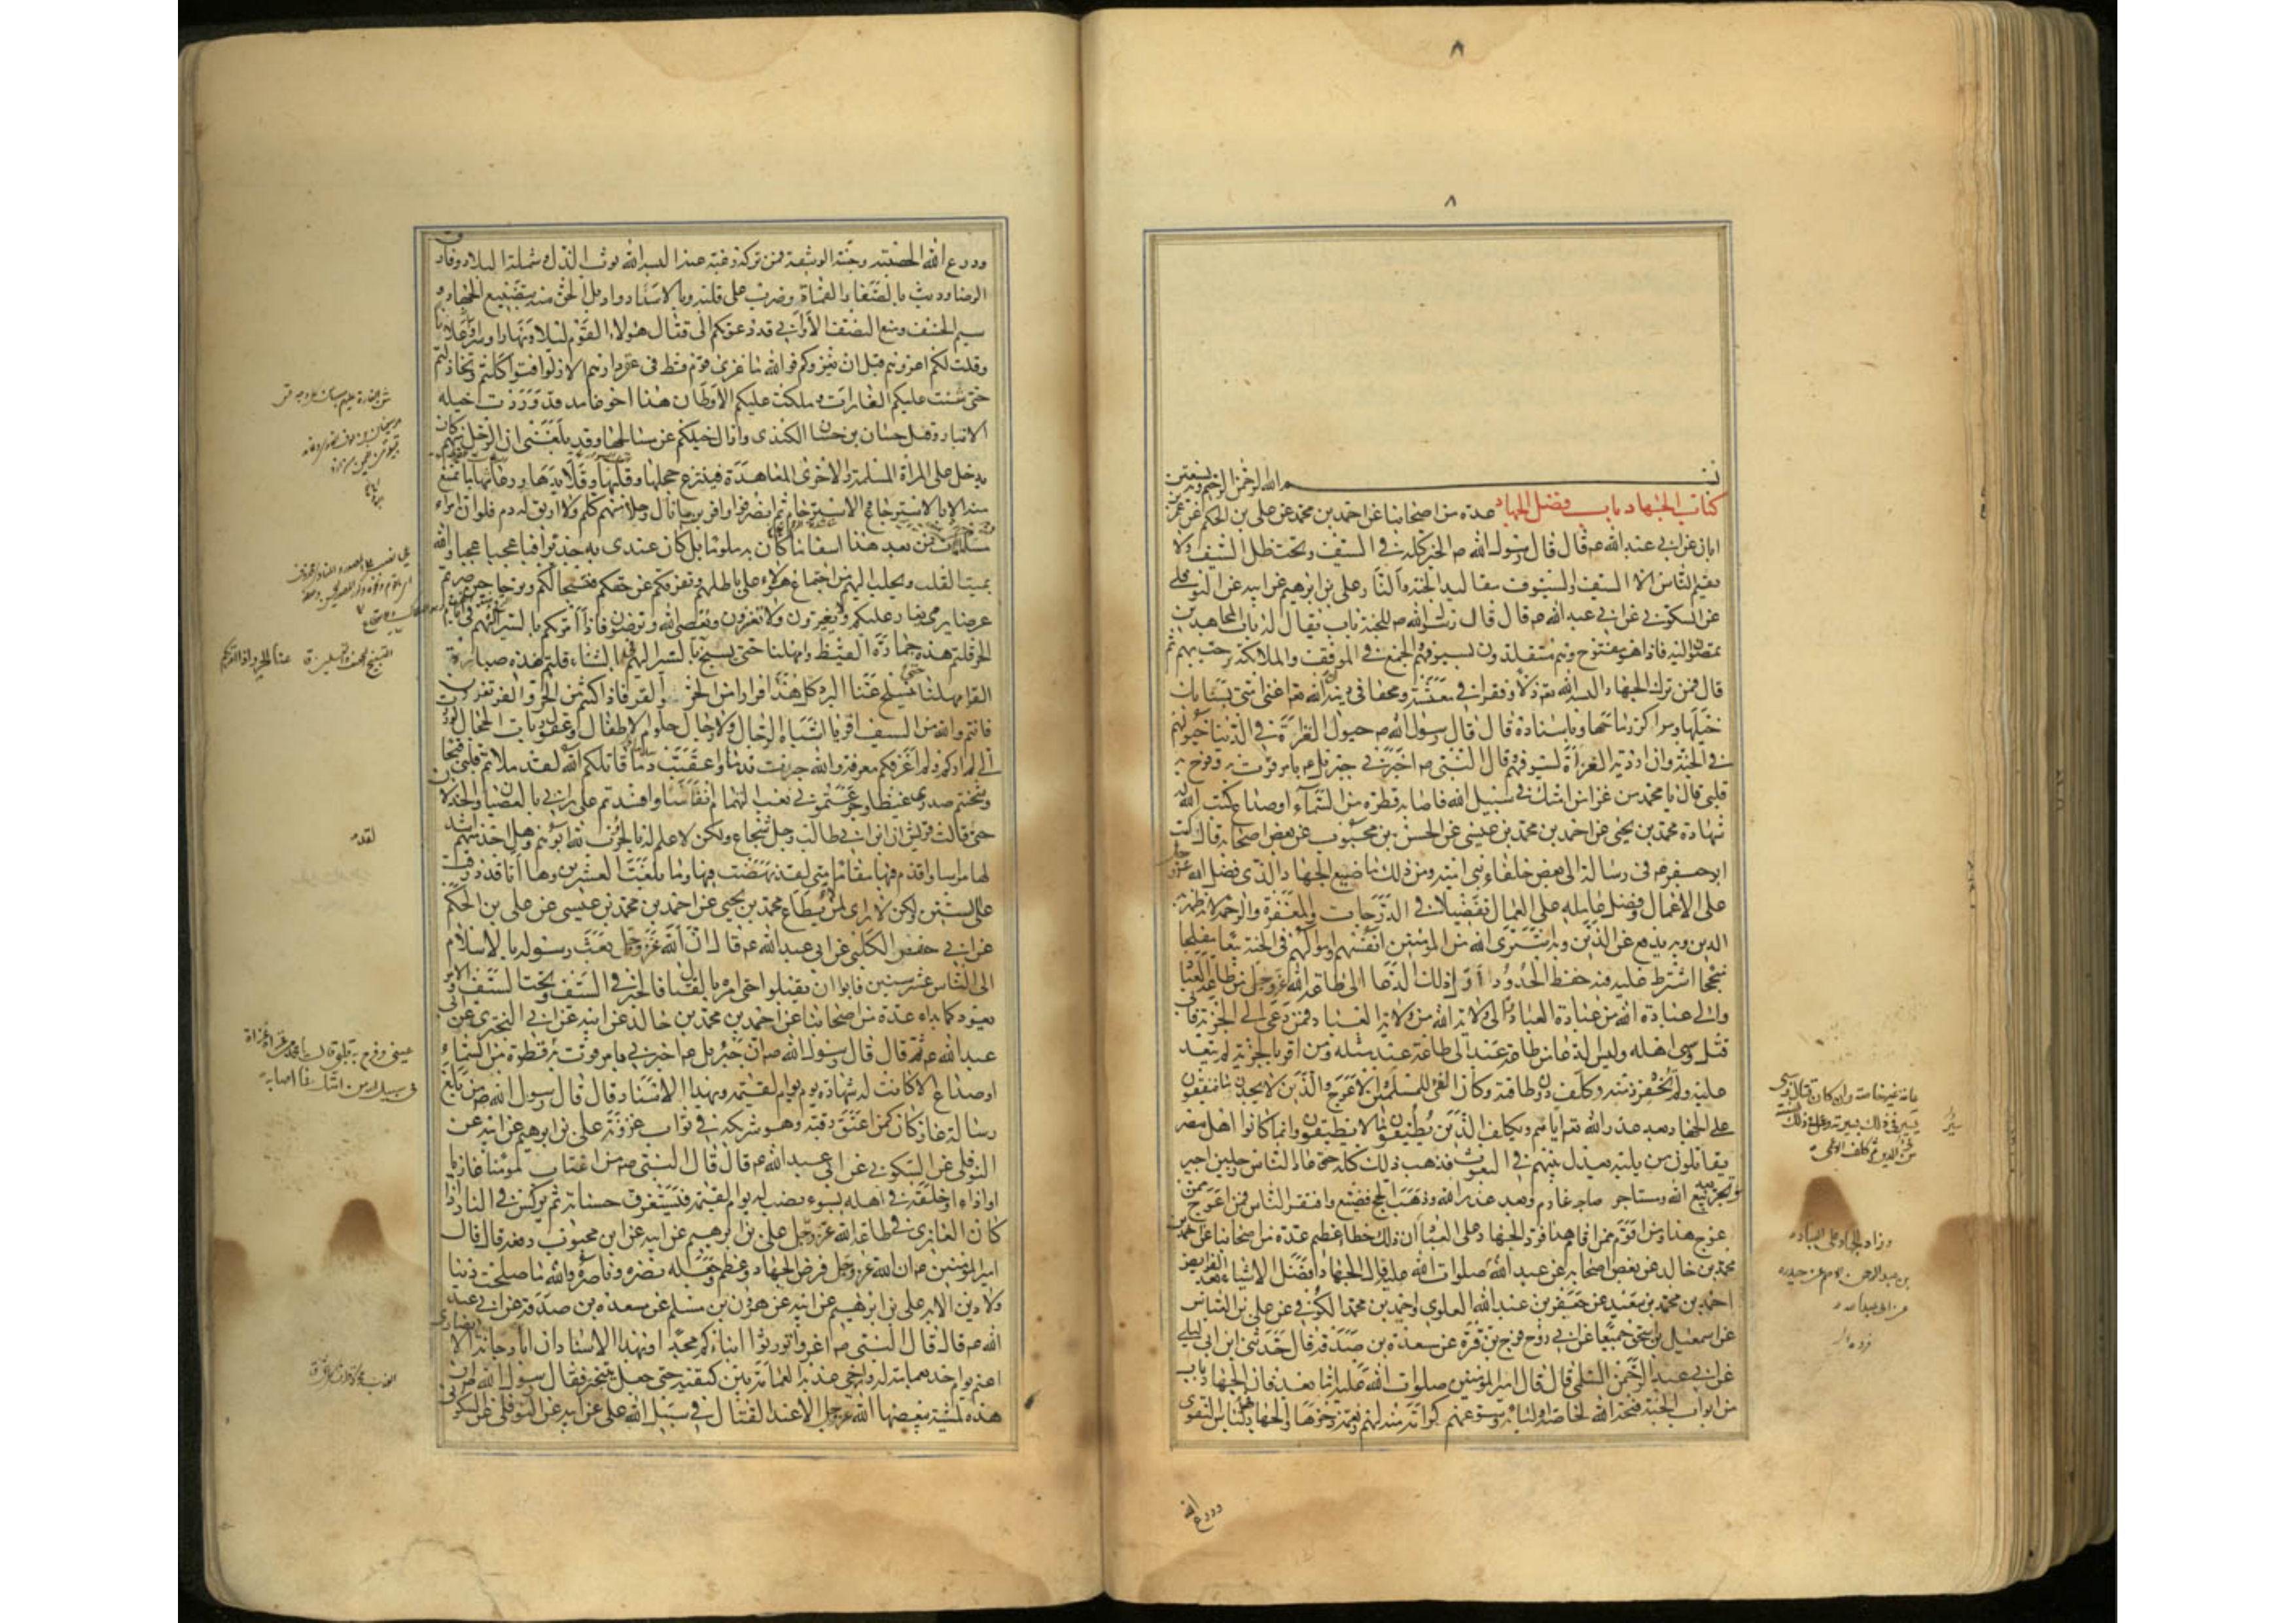 ٨
٨
بسم الله الرحمن الرحيم وبه نستعين
كتاب الجهاد باب فضل الجهاد عدة من اصحابنا عن احمد بن محمد عن علي بن الحكم عن عمر بن
ابان عن ابي عبد الله ع قال قال رسول الله ص الخير كله في السيف وتحت ظل السيف ولا
يقيم الناس الا السيف والسيوف مقاليد الجنة والنار علي بن ابرهيم عن ابيه عن النوفلي
عن السكوني عن ابي عبد الله ع قال قال رسول الله ص للجنة باب يقال له باب المجاهدين
يمضون اليه فاذا هو مفتوح وهم متقلدون بسيوفهم والجمع في الموقف والملائكة ترحب بهم ثم
قال فمن ترك الجهاد البسه الله ذلا وفقرا في معيشته ومحقا في دينه ان الله اغنى امتي بسنابك
خيلها ومراكز رماحها وباسناده قال قال رسول الله ص خيول الغزاة في الدنيا خيولهم
في الجنة وان اردية الغزاة لسيوفهم قال النبي ص اخبرني جبرئيل ع بامر قرت به وفرح به
قلبي قال يا محمد من غزا من امتك في سبيل الله فاصابه قطرة من السماء او صداع كتب الله له
شهادة محمد بن يحيى عن احمد بن محمد بن عيسى عن الحسن بن محبوب عن بعض اصحابه قال كتب
ابو جعفر ع في رسالة الى بعض خلفاء بني امية ومن ذلك ما ضيع الجهاد الذي فضله الله عز وجل
على الاعمال وفضل عامله على العمال تفضيلا في الدرجات والمغفرة والرحمة لانه ظهر به
الدين وبه يدفع عن الدين وبه اشترى الله من المؤمنين انفسهم واموالهم في الجنة بيعا مفلحا
منجحا اشترط عليهم فيه حفظ الحدود اول ذلك الدعا الى طاعة الله عز وجل من طاعة العباد
والى عبادة الله من عبادة العباد والى ولاية الله من ولاية العباد فمن دعي الى الجزية فابى
قتل وسبي اهله وليس الدعا من طاعة عبد الى طاعة عبد مثله ومن اقر بالجزية لم يتعد
عليه ولم تخفر ذمته وكلف دون طاقته وكان الفئ للمسلمين
على الجهاد بعد عذر الله
يقاتلون من يليه يعدل بينهم في البعوث فذهب ذلك كله حتى عاد الناس رجلين اجير
مؤتجر بعد بيع الله ومستاجر صاحبه غارم وبعد عذر الله وذهب الحج فضيع وافتقر الناس فمن اعوج ممن
عوج هذا ومن اقوم ممن اقام هذا فرد الجهاد على العباد ان ذلك خطا عظيم عدة من اصحابنا عن احمد بن
محمد بن خالد عن بعض اصحابه عن عبد الله صلوات الله عليه قال الجهاد افضل الاشياء بعد الفرايض
احمد بن محمد بن سعيد عن جعفر بن عبد الله العلوي واحمد بن محمد الكوفي عن علي بن العباس
عن اسمعيل بن اسحق جميعا عن ابي روح فرج بن قرة عن مسعدة بن صدقة قال حدثني ابن ابي ليلى
عن ابي عبد الرحمن السلمي قال قال امير المؤمنين صلوات الله عليه اما بعد فان الجهاد باب
من ابواب الجنة فتحه الله لخاصة اوليائه وسوغهم كرامة منه لهم ونعمة ذخرها والجهاد هو لباس التقوى
ودرع الله
ودرع الله الحصينة وجنته الوثيقة فمن تركه رغبة عنه البسه الله ثوب الذل وشملة البلاء وفارق
الرضا وديث بالصغار والقماءة وضرب على قلبه بالاسداد واديل الحق منه بتضييع الجهاد و
سيم الخسف ومنع النصف الا واني قد دعوتكم الى قتال هؤلاء القوم ليلا ونهارا وسرا واعلانا
وقلت لكم اغزوهم قبل ان يغزوكم فوالله ما غزي قوم قط في عقر دارهم الا ذلوا فتواكلتم وتخاذلتم
حتى شنت عليكم الغارات وملكت عليكم الاوطان هذا اخو غامد قد وردت خيله
الانبار وقتل حسان بن حسان الكندي وازال خيلكم عن مسالحها وقد بلغني ان الرجل منهم كان
يدخل على المراة المسلمة والاخرى المعاهدة فينتزع حجلها وقلبها وقلايدها ورعاثها ما تمنع
منه الا بالاسترجاع والاسترحام ثم انصرفوا وافرين ما نال رجلا منهم كلم ولا اريق له دم فلو ان امراء
مسلما مات من بعد هذا اسفا ما كان به ملوما بل كان عندي به جديرا فيا عجبا عجبا والله
يميت القلب ويجلب الهم من اجتماع هؤلاء على باطلهم وتفرقكم عن حقكم فقبحا لكم وترحا حين صرتم
غرضا يرمى يغار عليكم ولا تغيرون وتغزون ولا تغزون ويعصى الله وترضون فاذا امرتكم بالسير اليهم في ايام
الحر قلتم هذه حمارة القيظ امهلنا حتى يسبخ عنا الحر واذا امرتكم بالسير اليهم في الشتاء قلتم هذه صبارة
القر امهلنا حتى ينسلخ عنا البرد كل هذا فرارا من الحر والقر فاذا كنتم من الحر والقر تفرون
فانتم والله من السيف افر يا اشباه الرجال ولا رجال حلوم الاطفال وعقول ربات الحجال لوددت
اني لم اركم ولم اعرفكم معرفة والله جرت ندما واعقبت ذما قاتلكم الله لقد ملاتم قلبي قيحا
وشحنتم صدري غيظا وجرعتموني نغب التهمام انفاسا وافسدتم علي رايي بالعصيان والخذلان
حتى قالت قريش ان ابن ابي طالب رجل شجاع ولكن لا علم له بالحرب لله ابوهم وهل احد منهم اشد
لها مراسا واقدم فيها مقاما مني لقد نهضت فيها وما بلغت العشرين وها انا قد ذرفت
على الستين ولكن لا راي لمن لا يطاع محمد بن يحيى عن احمد بن محمد بن عيسى عن علي بن الحكم
عن ابي حفص الكلبي عن ابي عبد الله ع قال ان الله عز وجل بعث رسوله بالاسلام
الى الناس عشر سنين فابوا ان يقبلوا حتى امره بالقتال فالخير في السيف وتحت السيف والامر
يعود كما بداه عدة من اصحابنا عن احمد بن محمد بن خالد عن ابيه عن ابي البختري عن ابي
عبد الله ع قال قال رسول الله ص ان جبرئيل ع اخبرني بامر قرت به قطرة من السماء
او صداع الا كانت له شهادة يوم القيمة وبهذا الاسناد قال قال رسول الله ص من بلغ
رسالة غاز كان كمن اعتق رقبة وهو شريكه في ثواب غزوته علي بن ابرهيم عن ابيه عن
النوفلي عن السكوني عن ابي عبد الله ع قال قال النبي ص من اغتاب مؤمنا غازيا
او اذاه او خلفه في اهله بسوء نصب له يوم القيمة فيستغرق حسناته ثم يركس في النار اذا
كان الغازي في طاعة الله عز وجل علي بن ابرهيم عن ابيه عن ابن محبوب رفعه قال قال
امير المؤمنين ع ان الله عز وجل فرض الجهاد وعظمه وجعله نصره وناصره والله ما صلحت دنيا
ولا دين الا به علي بن ابرهيم عن ابيه عن هرون بن مسلم عن مسعدة بن صدقة عن ابي عبد
الله ع قال قال النبي ص اغزوا تورثوا ابناءكم مجدا وبهذا الاسناد ان ابا دجانة الانصاري
اعتم يوم احد بعمامة له وارخى عذبة العمامة بين كتفيه حتى جعل يتبختر فقال رسول الله ص ان
هذه لمشية يبغضها الله عز وجل الا عند القتال في سبيل الله علي عن ابيه عن النوفلي عن السكوني